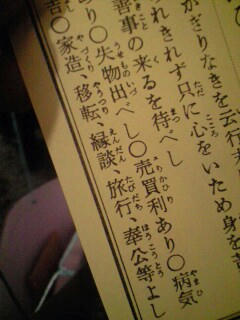 かぎりなきを云行末
れきれず只に心をいため身を苦
善事の来るを待べし
り〇失物出べし〇売買利あり〇病気
吉〇家造、移転、縁談、旅行、奉公等よし